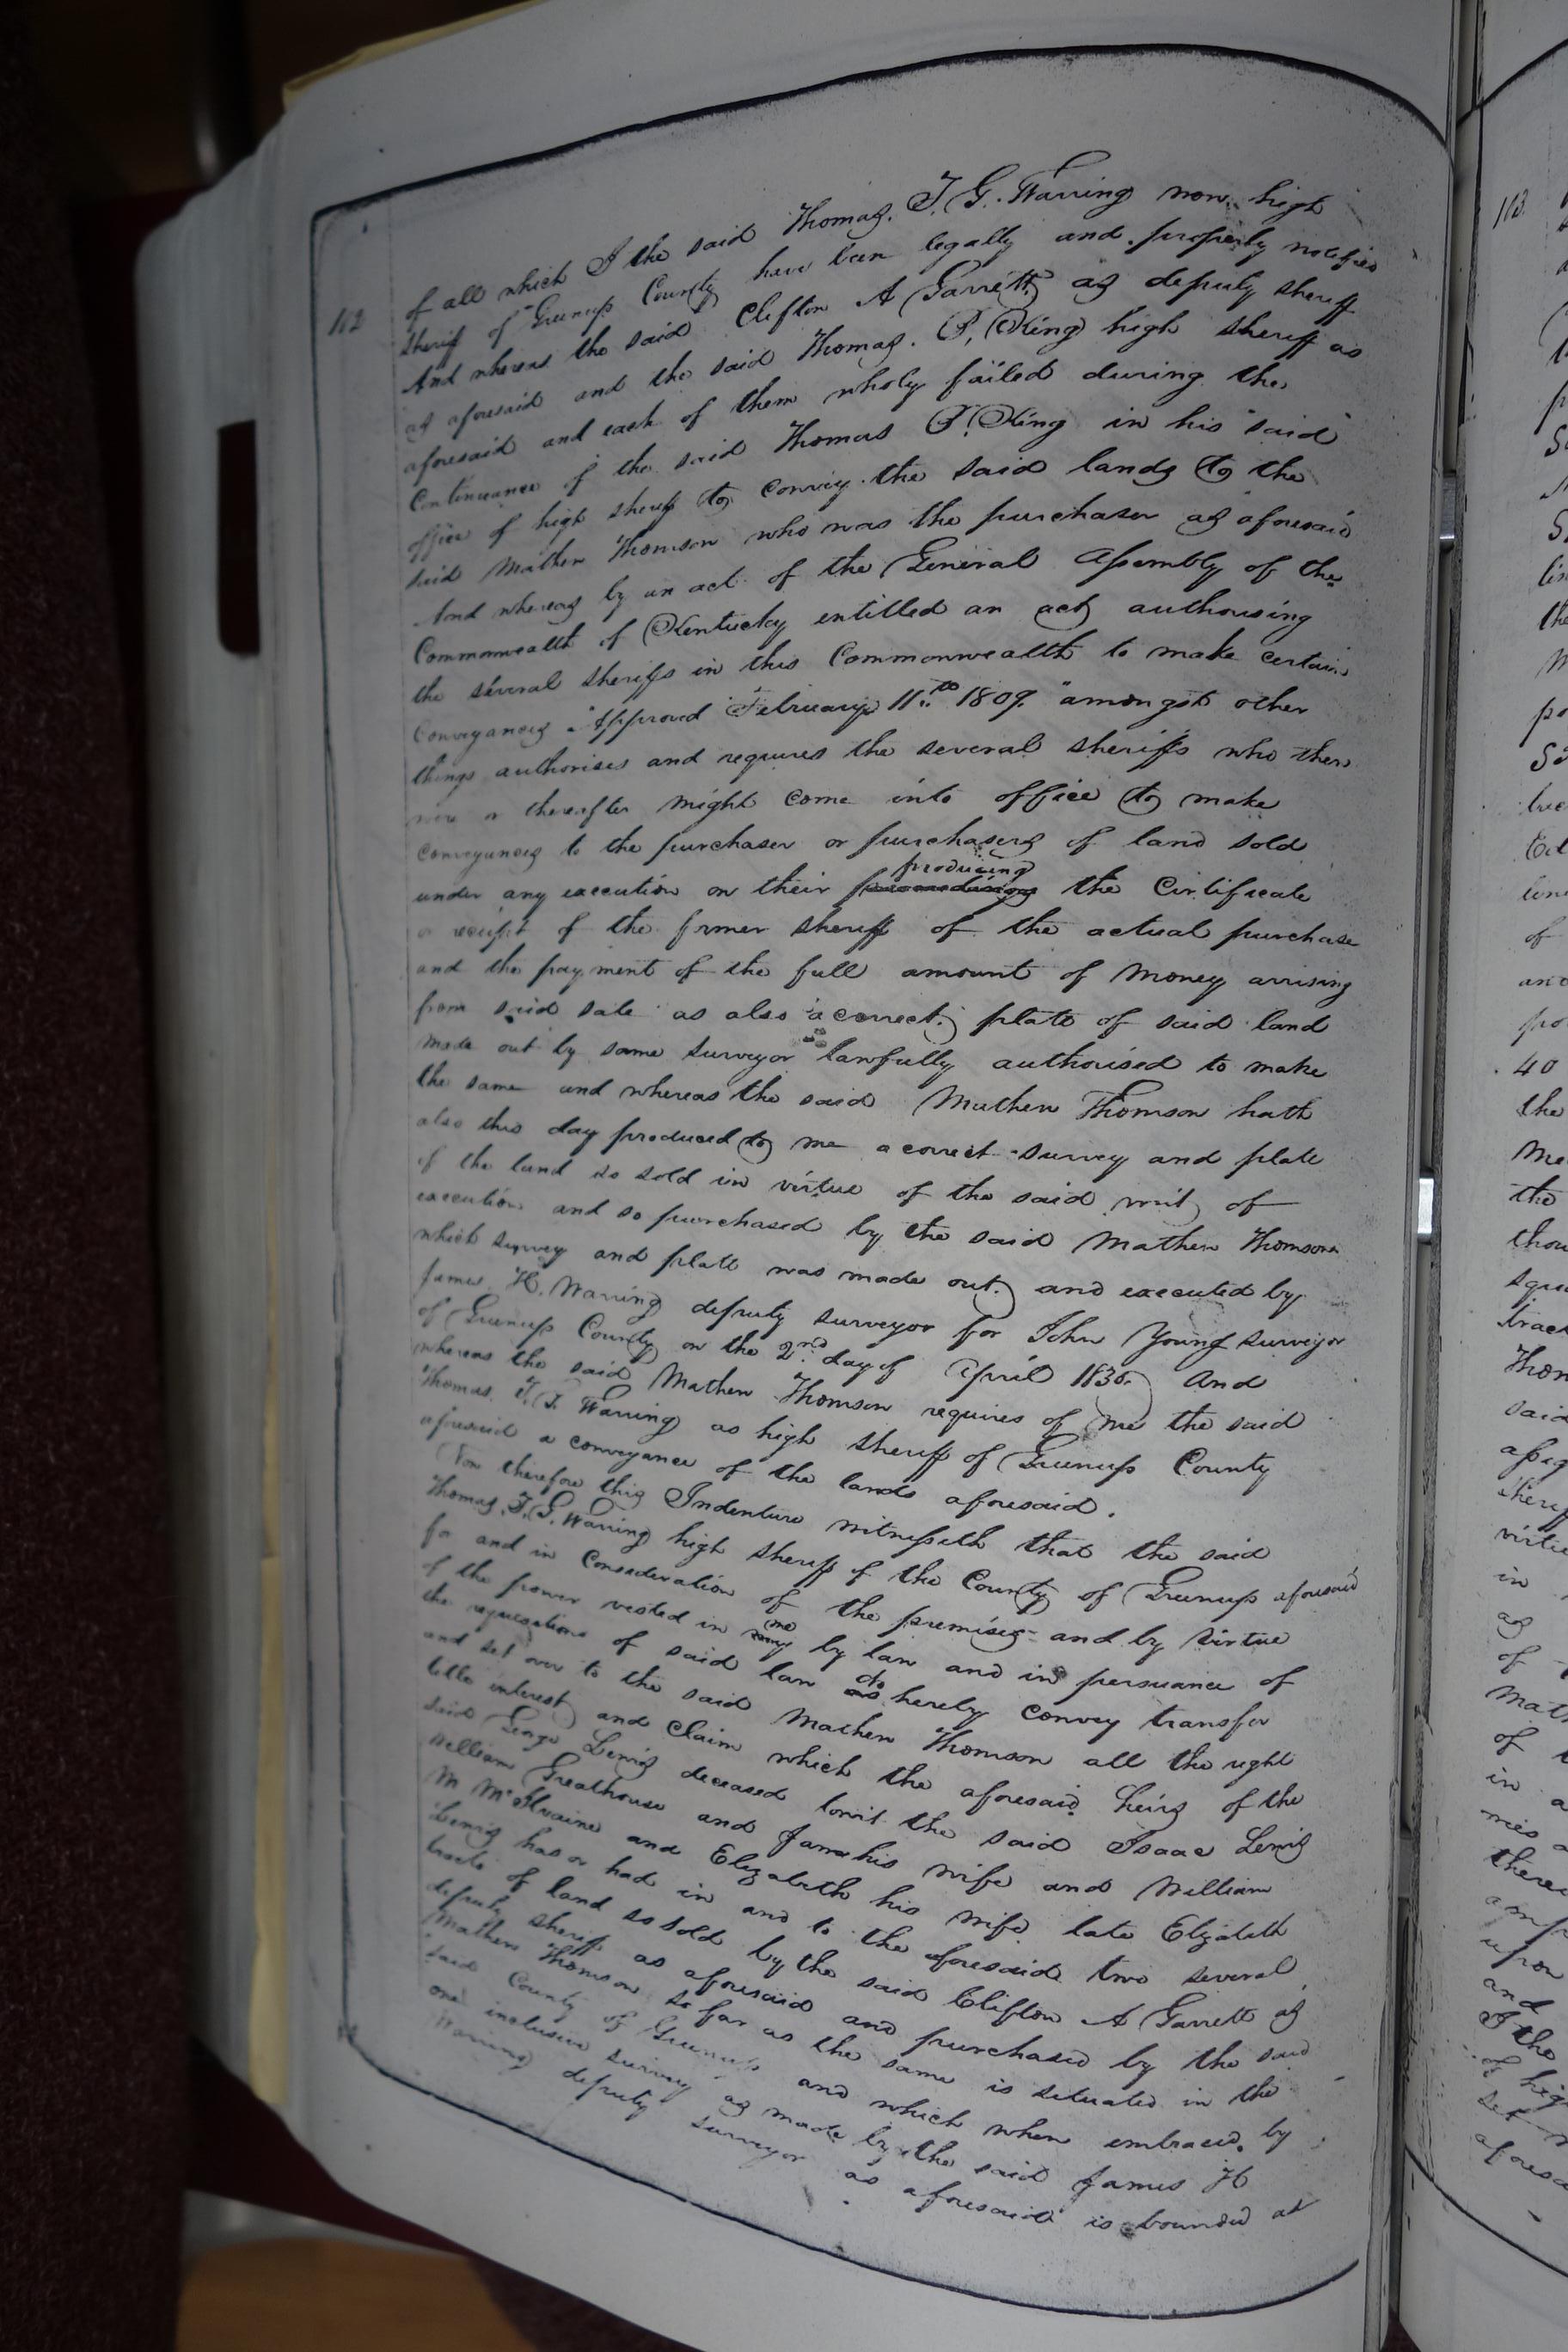 112
of all which I the said Thomas. T. G. Warring now high
Sheriff of Greenup County have been legally and properly notified
And whereas the said Clifton A Garrett as deputy sheriff
as aforesaid and the said Thomas. B, King high sheriff as
aforesaid and each of them wholy failed during the
Continuance of the said Thomas B. King in his said
office of high sheriff to convey the said lands to the
said Mathew Thomson who was the purchaser as aforesaid
And whereas by an act of the General Assembly of the
Commonwealth of Kentucky entitled an act authorising
the several sheriffs in this Commonwealth to make certain
conveyances "Approved February 11th 1809." amongst other
things authorises and requires the several sheriffs who then
were or thereafter might come into office to make
conveyances to the purchaser or purchasers of land sold
under any execution on their producing the Certificate
or receipt of the former sheriff of the actual purchase
and the payment of the full amount of money arrising
from said sale as also a correct plate of said land
made out by some surveyor lawfully authorised to make
the same and whereas the said Mathew Thomson hath
also this day produced to me a correct survey and plate
of the land so sold in virtue of the said writ of
execution and so purchased by the said Mathew Thomson
which survey and platt was made out and executed by
James H. Warring deputy surveyor for John Young surveyor
of Greenup County on the 2nd day of April 1836 And
whereas the said Mathew Thomson requires of me the said
Thomas. T. G. Warring as high sheriff of Greenup County
aforesaid a conveyance of the lands aforesaid.
Now therefore this Indenture witnesseth that the said
Thomas. T. G. Warring high sheriff of the County of Greenup aforesaid
for and in Consideration of the premises and by virtue
of the power vested in me by law and in persuance of
the requesations of said law do hereby convey transfer
and set over to the said Mathew Thomson all the right
title interest and claim which the aforesaid heirs of the
said George Lewis deceased towit the said Isaac Lewis
William Greathouse and Jane his wife and William
M McIlvaine and Elizabeth his wife late Elizabeth
Lewis has or had in and to the aforesaid two several
tracts of land so sold by the said Clifton A Garrett as
deputy sheriff as aforesaid and purchased by the said
Mathew Thomson so far as the same is situated in the
said County of Greenup and which when embraced by
one inclusive survey as made by the said James H
Warring deputy surveyor as aforesaid is bounded as
113